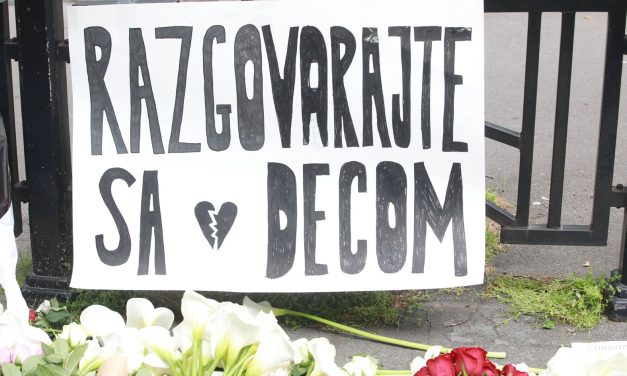 RAZGOVARAJTE
SA DECOM